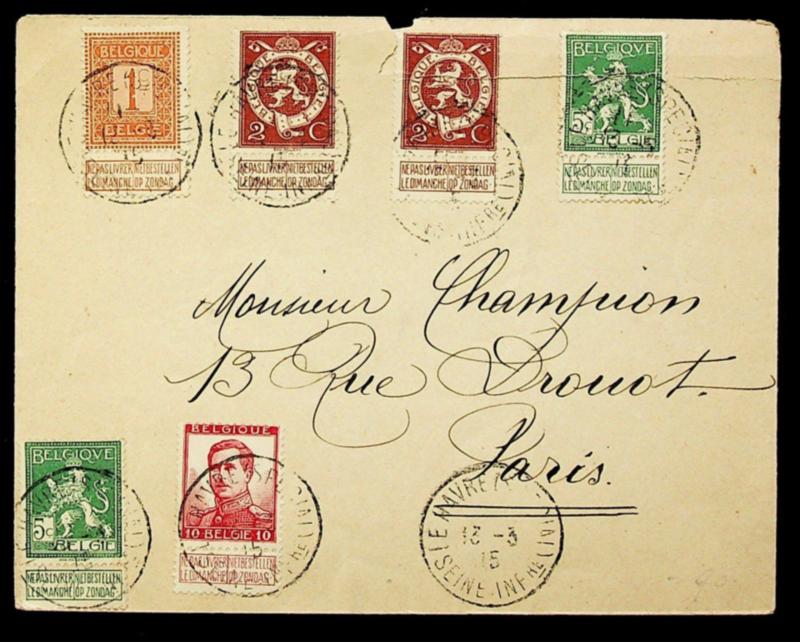 BELGIQUE
1
BELGIË
NE PAS LIVRER NIET BESTELLEN
LE DIMANCHE OP ZONDAG
BELGIQUE BELGIE
2 C
NE PAS LIVRER NIET BESTELLEN
LE DIMANCHE OP ZONDAG
BELGIQUE BELGIE
2 C
NE PAS LIVRER NIET BESTELLEN
LE DIMANCHE OP ZONDAG
BELGIQVE
5c BELGIE
NE PAS LIVRER NIET BESTELLEN
LE DIMANCHE OP ZONDAG
Monsieur Champion
13 Rue Drouot.
Paris.
BELGIQVE
5c BELGIE
NE PAS LIVRER NIET BESTELLEN
LE DIMANCHE OP ZONDAG
BELGIQUE
10 BELGIE 10
NE PAS LIVRER NIET BESTELLEN
LE DIMANCHE OP ZONDAG
LE HAVRE
13 -3
15
(SEINE-INFRE)